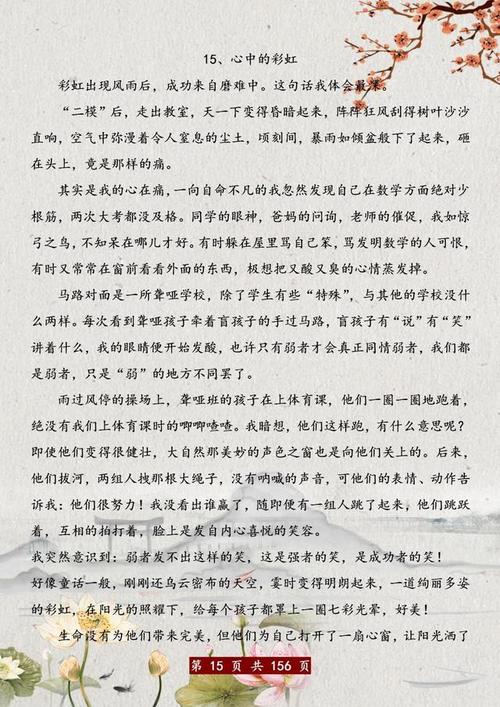 15、心中的彩虹
彩虹出现风雨后，成功来自磨难中。这句话我体会最深。
“二模”后，走出教室，天一下变得昏暗起来，阵阵狂风刮得树叶沙沙
直响，空气中弥漫着令人窒息的尘土，顷刻间，暴雨如倾盆般下了起来，砸
在头上，竟是那样的痛。
其实是我的心在痛，一向自命不凡的我忽然发现自己在数学方面绝对少
根筋，两次大考都没及格。同学的眼神，爸妈的问询，老师的催促，我如惊
弓之鸟，不知呆在哪儿才好。有时躲在屋里骂自己笨，骂发明数学的人可恨，
有时又常常在窗前看看外面的东西，极想把又酸又臭的心情蒸发掉。
马路对面是一所聋哑学校，除了学生有些“特殊”，与其他的学校没什
么两样。每次看到聋哑孩子牵着盲孩子的手过马路，盲孩子有“说”有“笑”
讲着什么，我的眼睛便开始发酸，也许只有弱者才会真正同情弱者，我们都
是弱者，只是“弱”的地方不同罢了。
雨过风停的操场上，聋哑班的孩子在上体育课，他们一圈一圈地跑着，
绝没有我们上体育课时的唧唧喳喳。我暗想，他们这样跑，有什么意思呢？
即使他们变得很健壮，大自然那美妙的声色之窗也是向他们关上的。后来，
他们拔河，两组人拽那根大绳子，没有呐喊的声音，可他们的表情、动作告
诉我：他们很努力！我没看出谁赢了，随后便有一组人跳了起来，他们跳跃
着，互相的拍打着，脸上是发自内心喜悦的笑容。
我突然意识到：弱者发不出这样的笑，这是强者的笑，是成功者的笑！
好像童话一般，刚刚还乌云密布的天空，霎时变得明朗起来，一道绚丽多姿
的彩虹，在阳光的照耀下，给每个孩子都罩上一圈七彩光晕，好美！
生命没有为他们带来完美，但他们为自己打开了一扇心窗，让阳光洒了
第 15 页 共 156 页